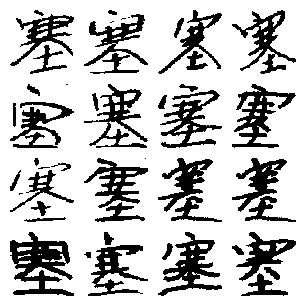 塞塞塞塞
塞塞塞塞
塞塞塞塞
塞塞塞塞